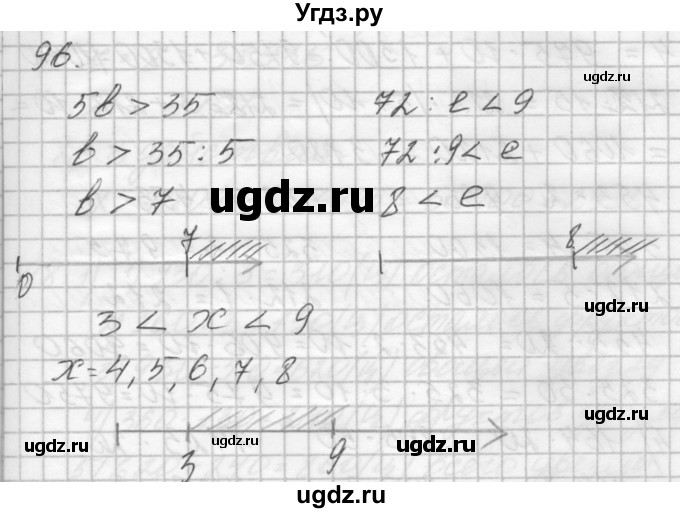 Угдз.ру
96.
5в > 35
в > 35 : 5
в > 7
72 : е < 9
72 : 9 < е
8 < е
0 7
8
3 < х < 9
х = 4, 5, 6, 7, 8
3 9
ugdz.ru
ugdz.ru
ugdz.ru
ugdz.ru
ugdz.ru
ugdz.ru
ugdz.ru
ugdz.ru
ugdz.ru
ugdz.ru
ugdz.ru